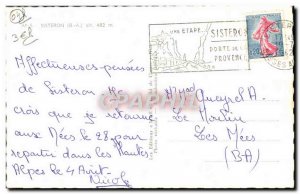 SISTERON (B.-A.) alt. 482 m.
UNE ETAPE
SISTERON
PORTE DE LA
PROVENCE
Affectueuses pensées
de Sisteron. Je
crois que je retourne
aux Mées le 28 pour
repartir dans les Hautes
Alpes le 4 Août.
Nicole
Queyrel A.
Le Moulin
Les Mées
(BA)